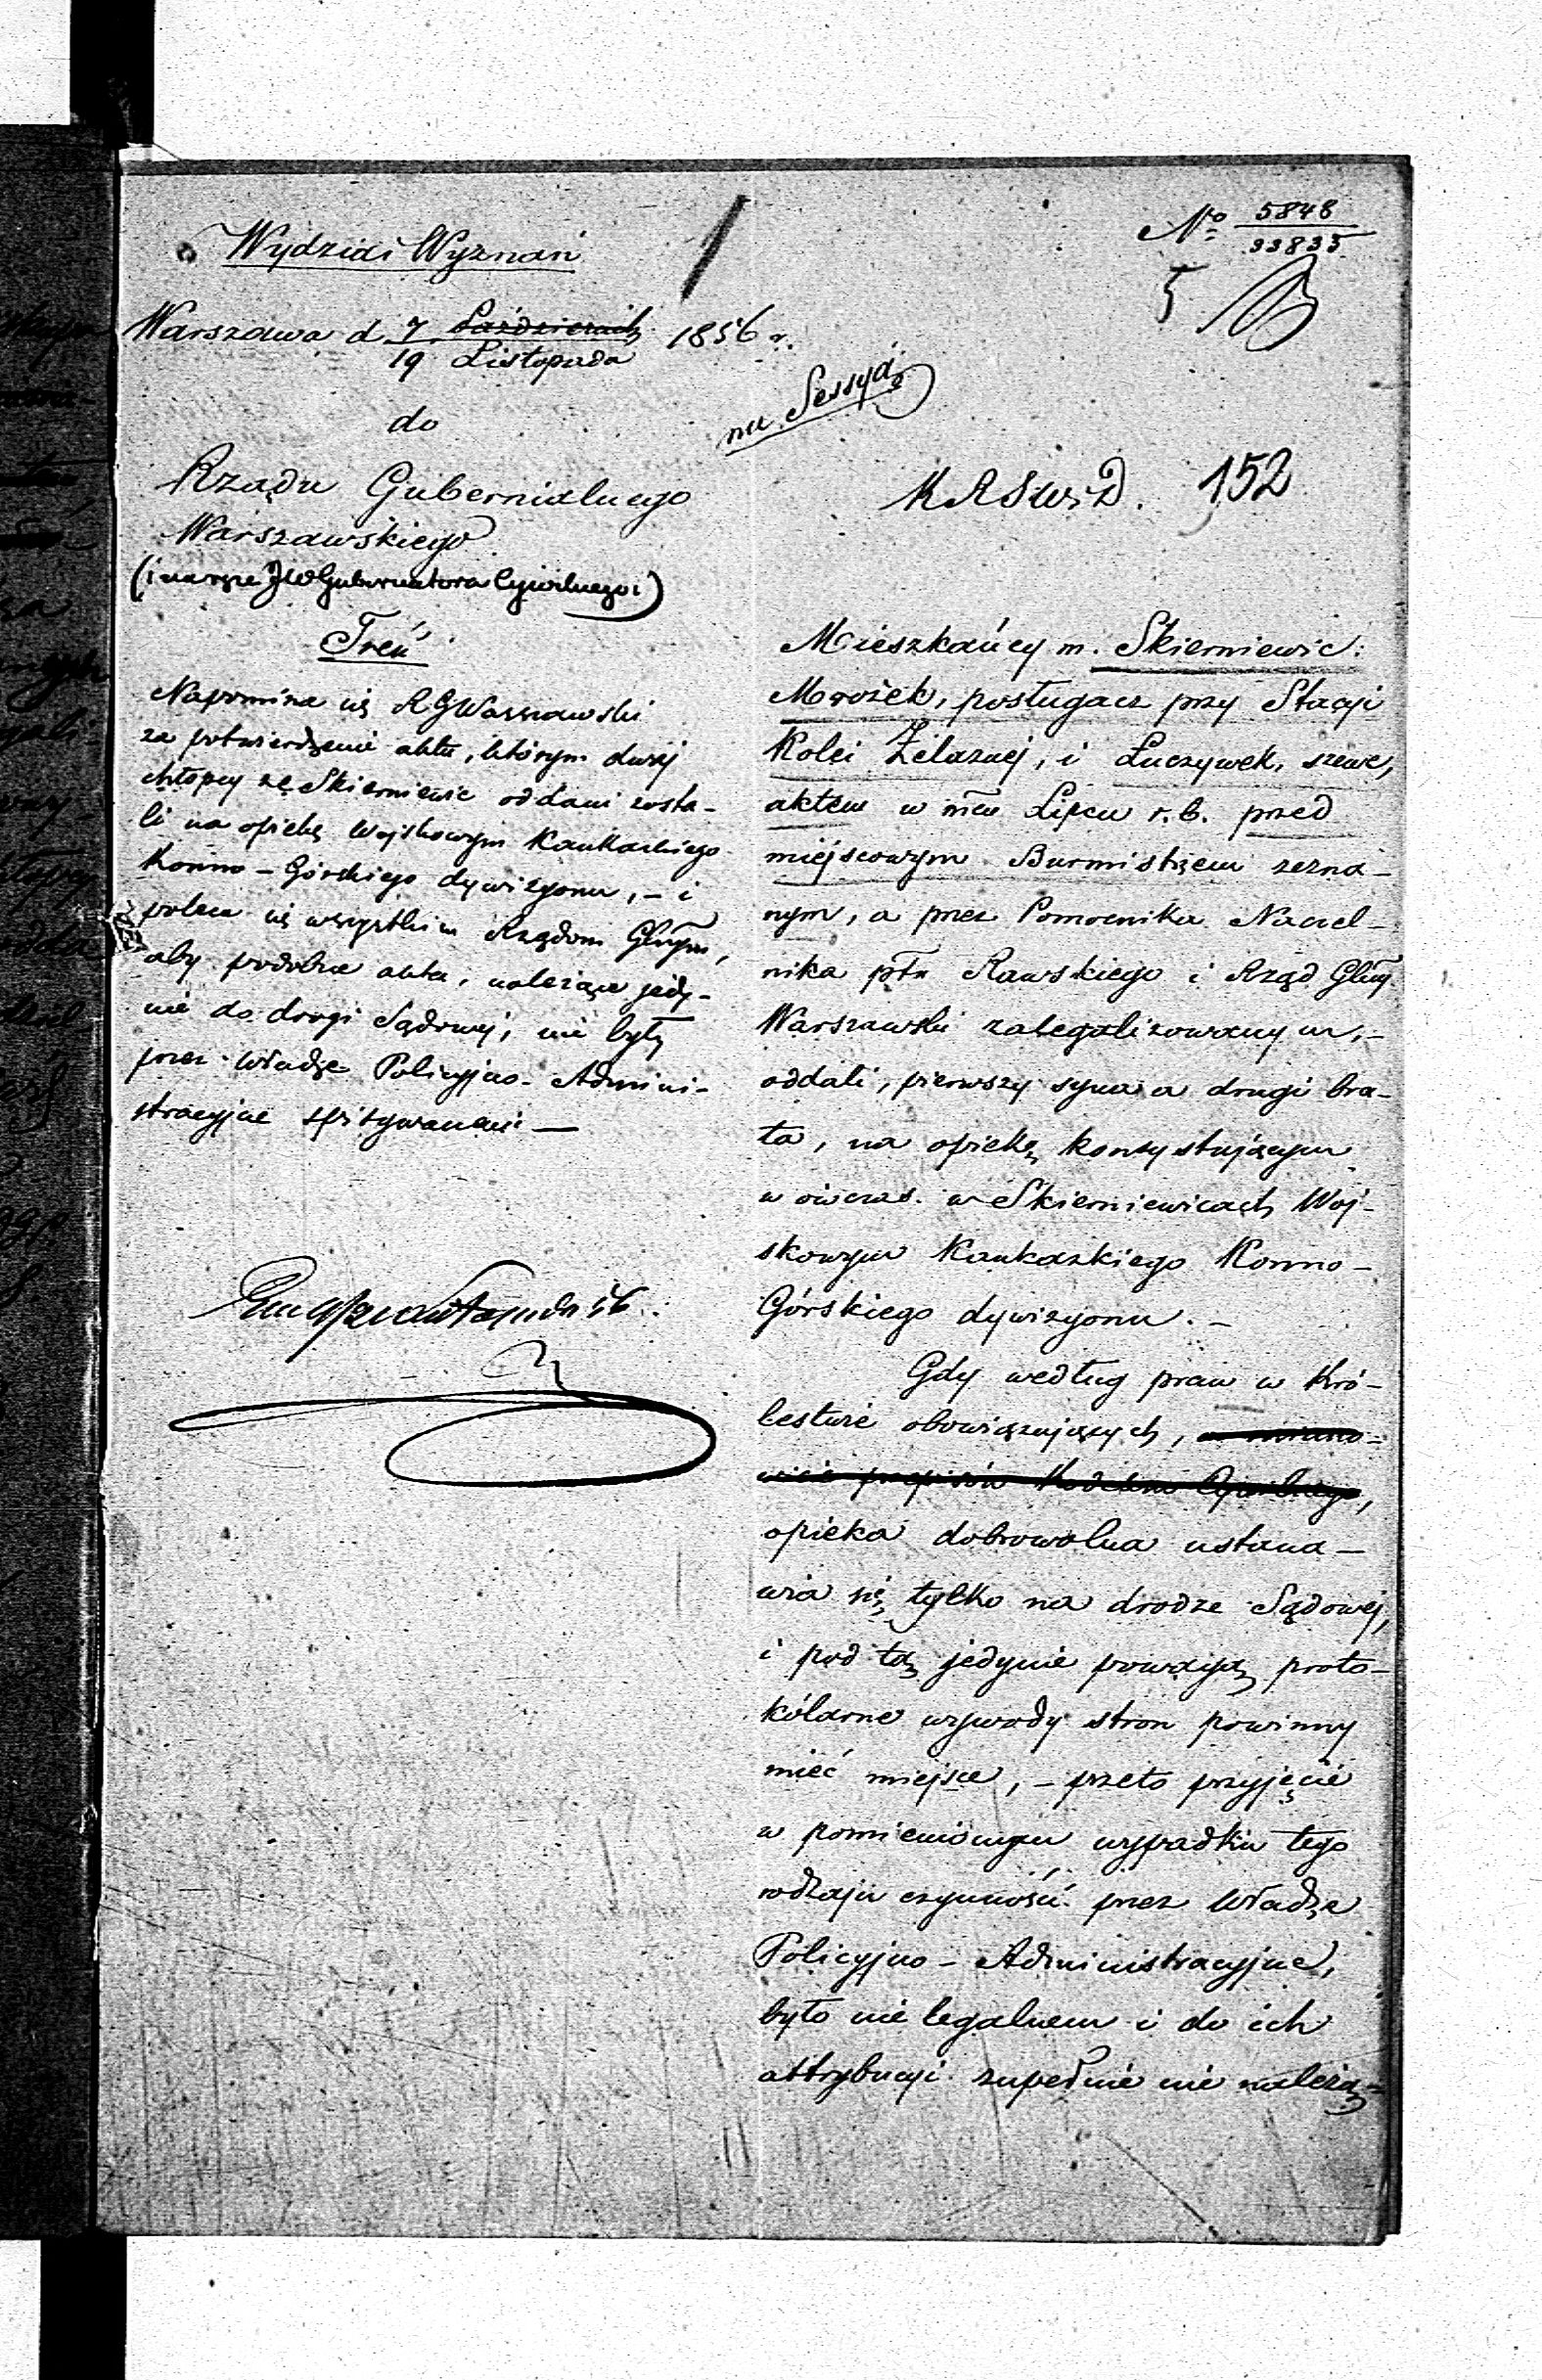 Wydział Wyznań
No 5848
33835
5
Warszawa d 7 Październik 1856 r.
19 Listopada
na Sessyą
do
Rządu Gubernialnego
Warszawskiego
(i na ręce JW Gubernatora Cywilnego)
K R S W i D. 152
Treść
Napomina się R G Warszawski
za potwierdzenie aktu, którym dwaj
chłopcy ze Skierniewic oddani zosta-
li na opiekę Wojskowym Kaukaskiego
Konno-Górskiego dywizyonu, - i
poleca się wszystkim Rządom Glnym,
aby podobne akta, należące jedy-
nie do drogi Sądowej, nie były
przez Władze Policyjno-Admini-
stracyjne spisywanemi —
Mieszkańcy m. Skierniewic:
Mrożek, posługacz przy Stacyi
Kolei Żelaznej, i Łuczywek, szewc,
aktem w mcu Lipcu r. b. przed
miejscowym Burmistrzem zezna-
nym, a przez Pomocnika Naczel-
nika ptu Rawskiego i Rząd Glny
Warszawski zalegalizowanym, -
oddali, pierwszy syna a drugi bra-
ta, na opiekę konsystującym
w ówczas w Skierniewicach Woj-
skowym Kaukazkiego Konno-
Górskiego dywizyonu. -
Gdy według praw w Kró-
lestwie obowiązujących, a miano-
wicie przepisów Kodexu Cywilnego,
opieka dobrowolna ustana-
wia się tylko na drodze Sądowej,
i pod tą jedynie powagą proto-
kólarne wywody stron powinny
mieć miejsce, - przeto przyjęcie
w pomienionym wypadku tego
rodzaju czynności przez Władze
Policyjno-Administracyjne,
było nie legalnem i do ich
attrybucyi zupełnie nie należą-